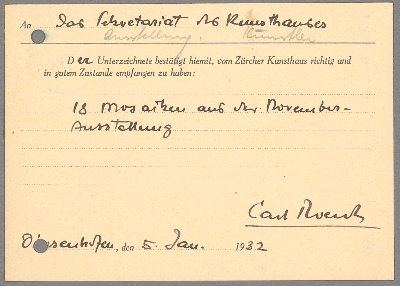 An das Sekretariat des Kunsthauses
Ausstellung. Künstler
Der Unterzeichnete bestätigt hiemit, vom Zürcher Kunsthaus richtig und
in gutem Zustande empfangen zu haben:
18 Mosaiken aus der November-
Ausstellung
Carl Roesch
Diessenhofen, den 5. Jan. 1932